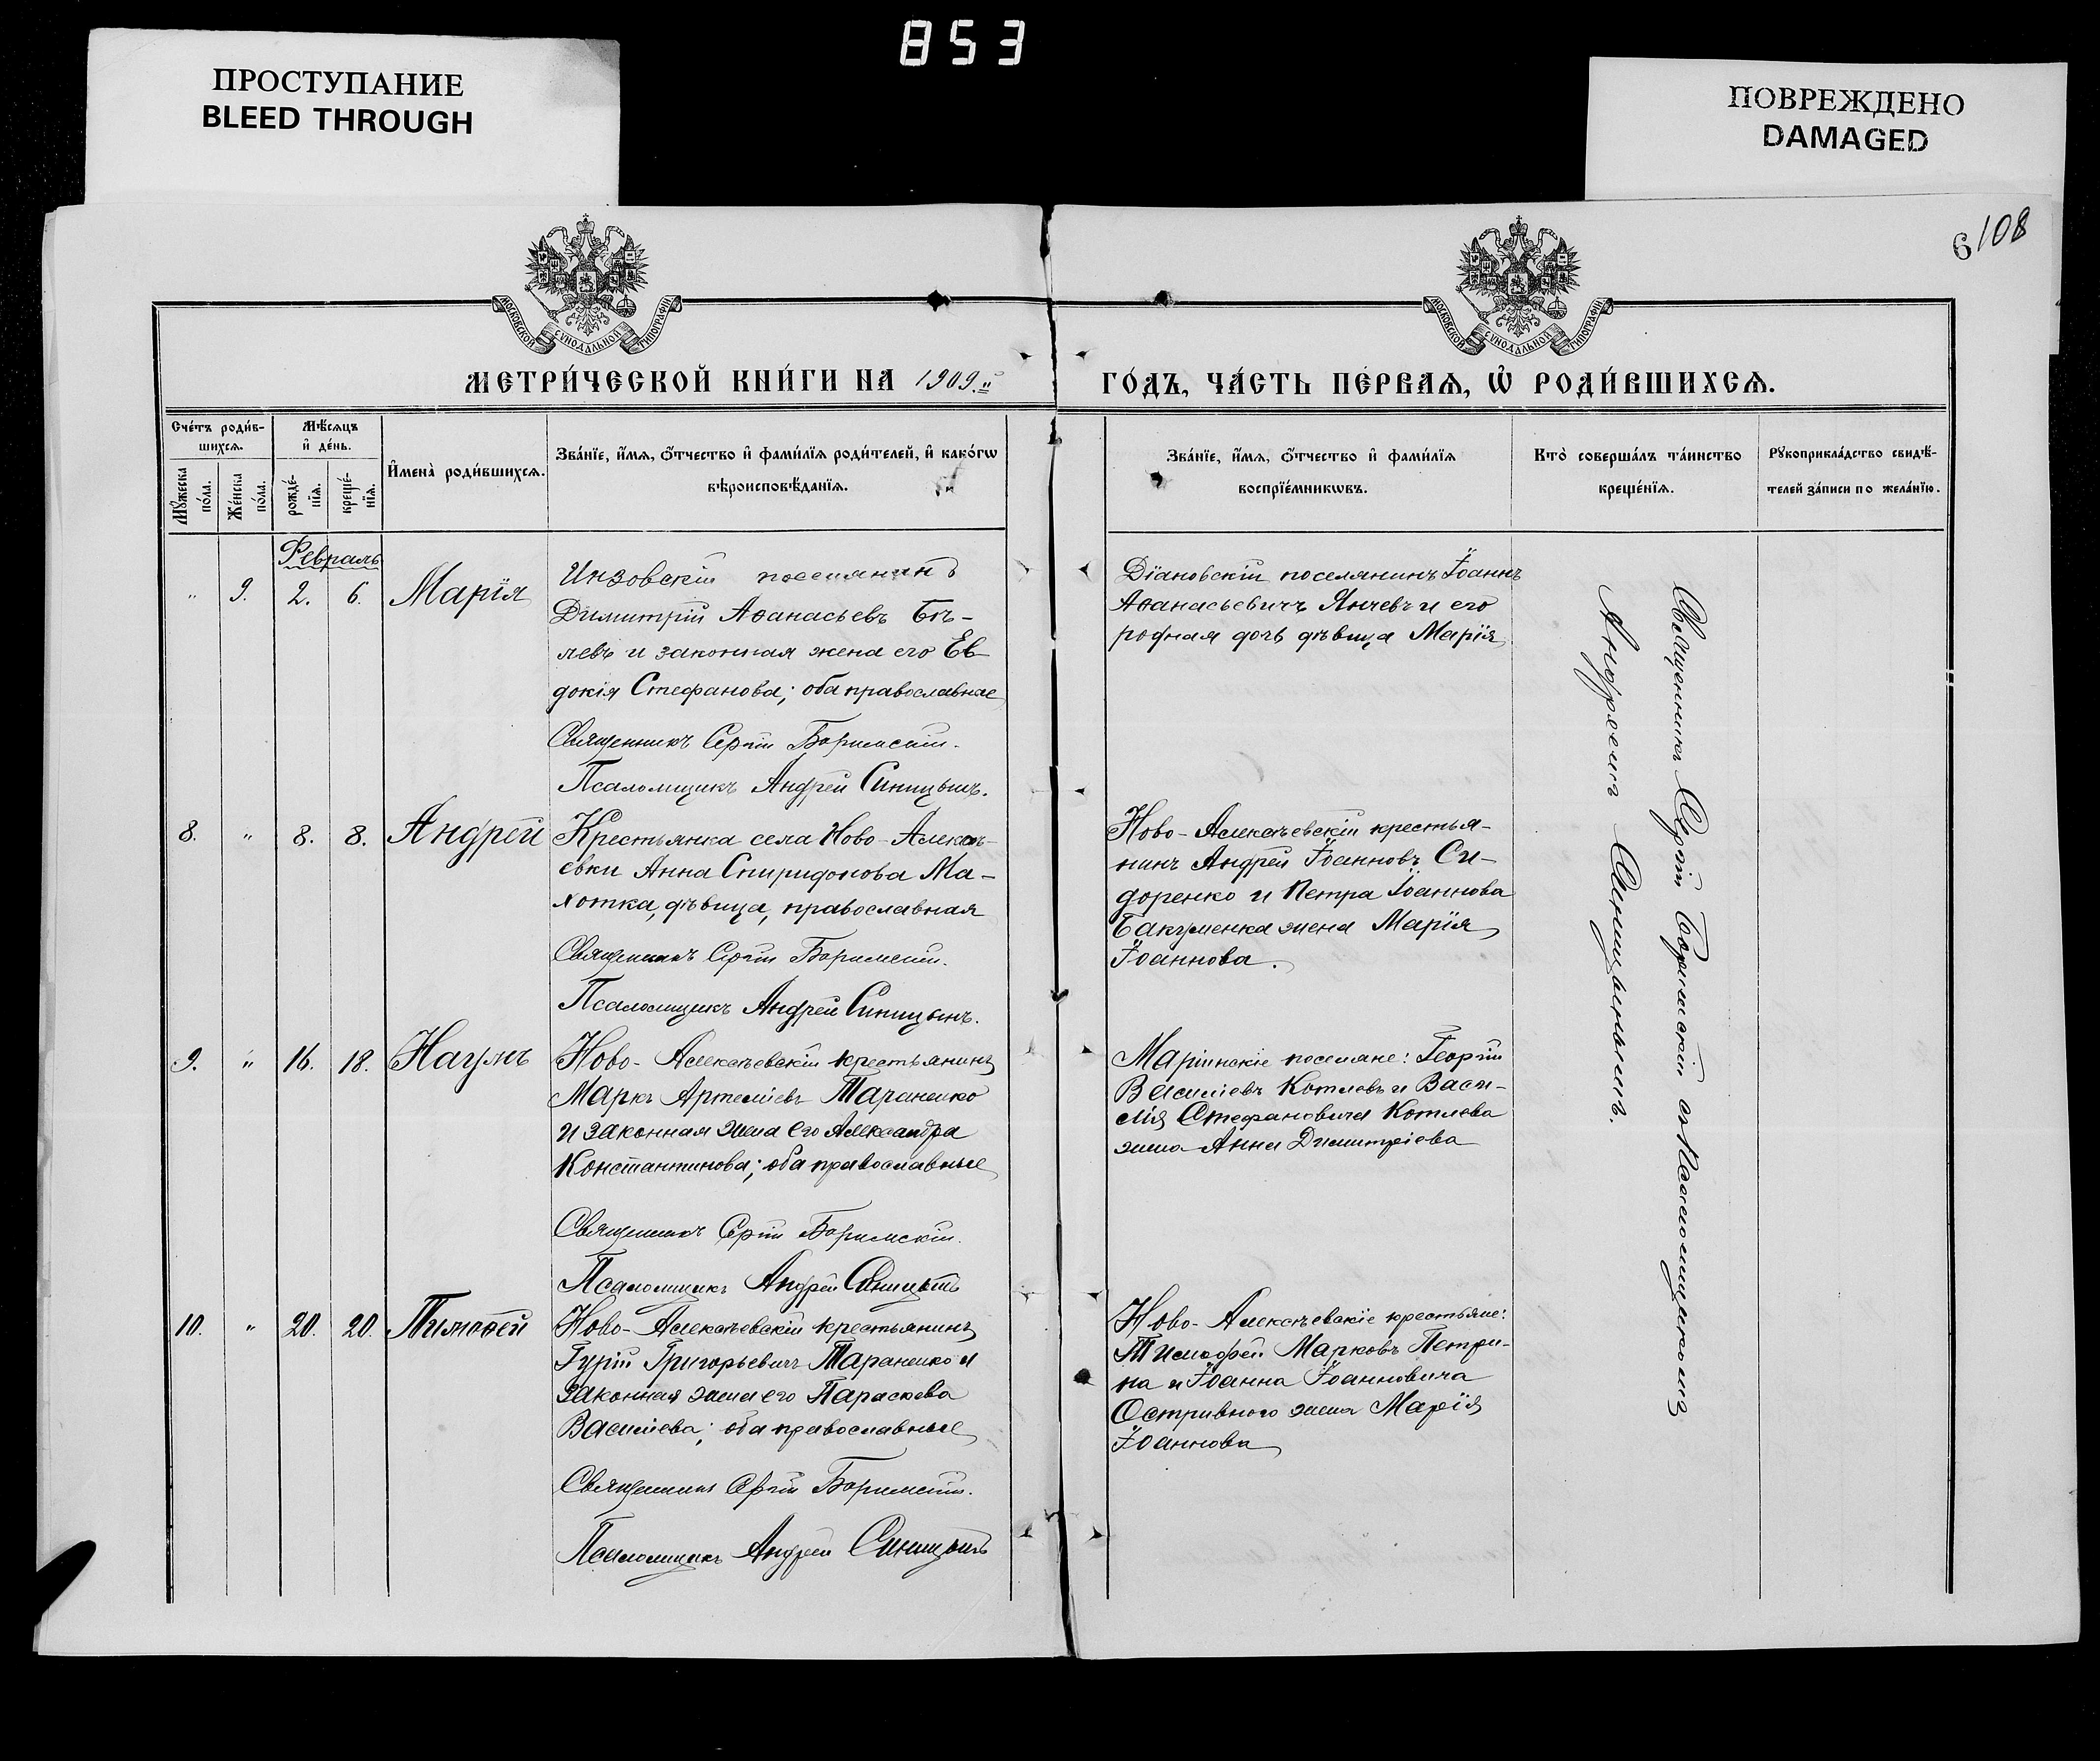 853
ПРОСТУПАНИЕ
BLEED THROUGH
ПОВРЕЖДЕНО
DAMAGED
6 108
МОСКОВСКОЙ СѴНОДАЛЬНОЙ ТИПОГРАФІИ
МОСКОВСКОЙ СѴНОДАЛЬНОЙ ТИПОГРАФІИ
МЕТРИ́ЧЕСКОЙ КНИ́ГИ НА 1909.й
ГО́ДЪ, ЧА́СТЬ ПЕ́РВАѦ, Ѡ҆ РОДИ́ВШИХСѦ.
Сче́тъ роди́в-
шихсѧ.
Мꙋ́жеска по́ла.
Же́нска по́ла.
Мѣ́сѧцъ
и҆ де́нь.
рожде́-нїѧ.
креще́-нїѧ.
И҆мена̀ роди́вшихсѧ.
Зва́нїе, и҆́мѧ, ѻ҆́тчество и҆ фами́лїѧ роди́телей, и҆ како́гѡ
вѣроисповѣ́данїѧ.
Зва́нїе, и҆́мѧ, ѻ҆́тчество и҆ фами́лїѧ
воспрїе́мникѡвъ.
Кто̀ соверша́лъ та́инство
креще́нїѧ.
Рꙋкоприкла́дство свидѣ́-
телей за́писи по жела́нїю.
Февраль
" 9. 2. 6. Марія
Инзовскій поселянинъ
Димитрій Аѳанасьевъ Бѣ-
левъ и законная жена его Ев
докія Стефанова; оба православные
Священникъ Сергій Боримскій.
Псаломщикъ Андрей Синицынъ.
Діановскій поселянинъ Іоаннъ
Аѳанасьевичъ Янчевъ и его
родная дочь дѣвица Марія
8. " 8. 8. Андрей
Крестьянка села Ново-Алексѣ-
евки Анна Спиридонова Ма-
хотка, дѣвица, православная
Священникъ Сергій Боримскій.
Псаломщикъ Андрей Синицынъ.
Ново-Алексѣевскій крестья-
нинъ Андрей Іоанновъ Си-
доренко и Петра Іоаннова
Бакуменка жена Марія
Іоаннова.
9. " 16. 18. Наумъ
Ново-Алексѣевскій крестьянинъ
Маркъ Артеміевъ Тараненко
и законная жена его Александра
Константинова; оба православные
Священникъ Сергій Боримскій.
Псаломщикъ Андрей Синицынъ
Маріинскіе поселяне: Георгій
Василіевъ Котловъ и Васи-
лія Стефановича Котлова
жена Анна Димитріева
10. " 20. 20. Тимоѳей
Ново-Алексѣевскій крестьянинъ
Гурій Григорьевичъ Тараненко и
законная жена его Параскева
Василіева; оба православные
Священникъ Сергій Боримскій.
Псаломщикъ Андрей Синицынъ
Ново-Алексѣевскіе крестьяне:
Тимоѳей Марковъ Петри-
на и Іоанна Іоанновича
Остривного жена Марія
Іоаннова
Священникъ Сергій Боримскій съ Псаломщикомъ
Андреемъ Синицынымъ.